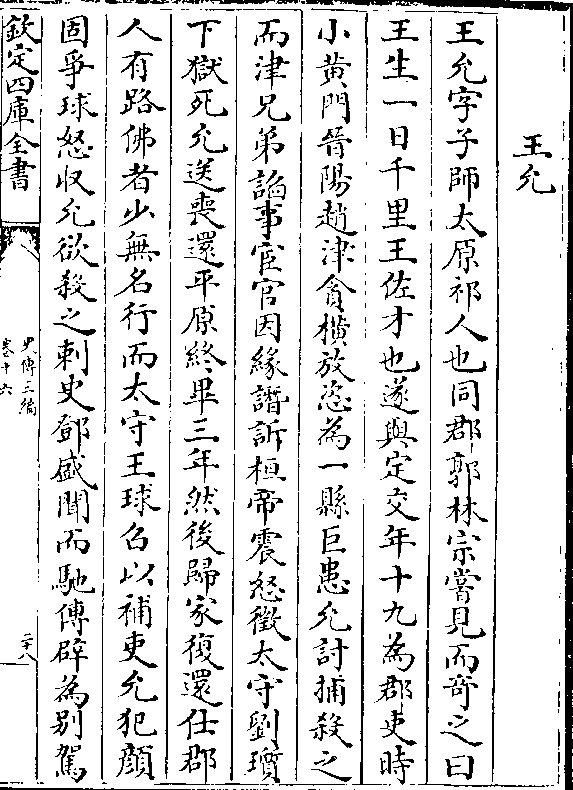 王允
王允字子師太原祁人也同郡郭林宗嘗見而奇之曰
王生一日千里王佐才也遂與定交年十九為郡吏時
小黄門晉陽趙津貪橫放恣為一縣巨患允討捕殺之
而津兄弟謟事宦官因緣譖訴桓帝震怒徵太守劉瓆
下獄死允送喪還平原終畢三年然後歸家復還仕郡
人有路佛者少無名行而太守王球召以補吏允犯顔
固爭球怒収允欲殺之刺史鄧盛聞而馳傳辟為别駕
欽定四庫全書
史傳三編
卷十六
二十八